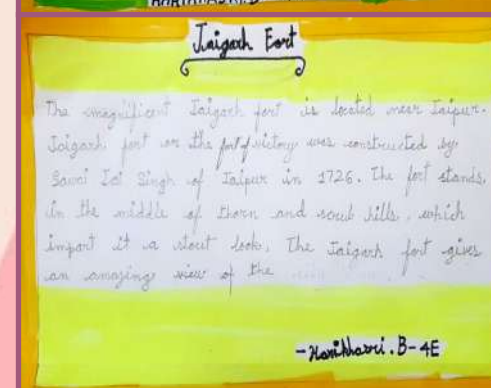 Jaigarh Fort
The magnificent Jaigarh fort is located near Jaipur.
Jaigarh fort or the fort of victory was constructed by
Sawai Jai Singh of Jaipur in 1726. The fort stands
in the middle of thorn and scrub hills, which
impart it a stout look. The Jaigarh fort gives
an amazing view of the
- Harikhasri.B-4E